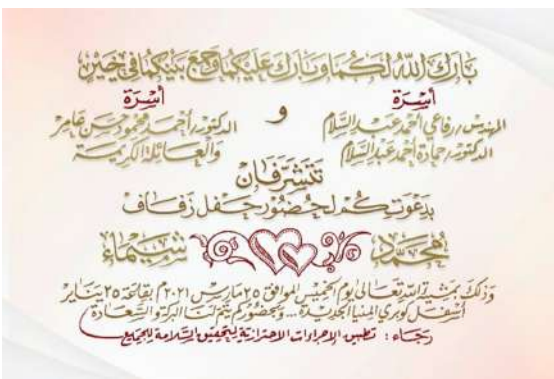 بارك الله لكما وبارك عليكما وجمع بينكما في خير
أسرة
المهندس/ رفاعي أحمد عبد السلام
الدكتور/ حمادة أحمد عبد السلام
و
أسرة
الدكتور/ أحمد محمود حسن عامر
والعائلة الكريمة
تتشرفان
بدعوتكم لحضور حفل زفاف
محمد شيماء
وذلك بمشيئة الله تعالى يوم الخميس الموافق ٢٥ مارس ٢٠٢١م بقاعة ٢٥ يناير
أسفل كوبري المنيا الجديدة ... وبحضوركم يتم لنا البركة والسعادة
رجاء : تطبيق الإجراءات الاحترازية لتحقيق السلامة للجميع